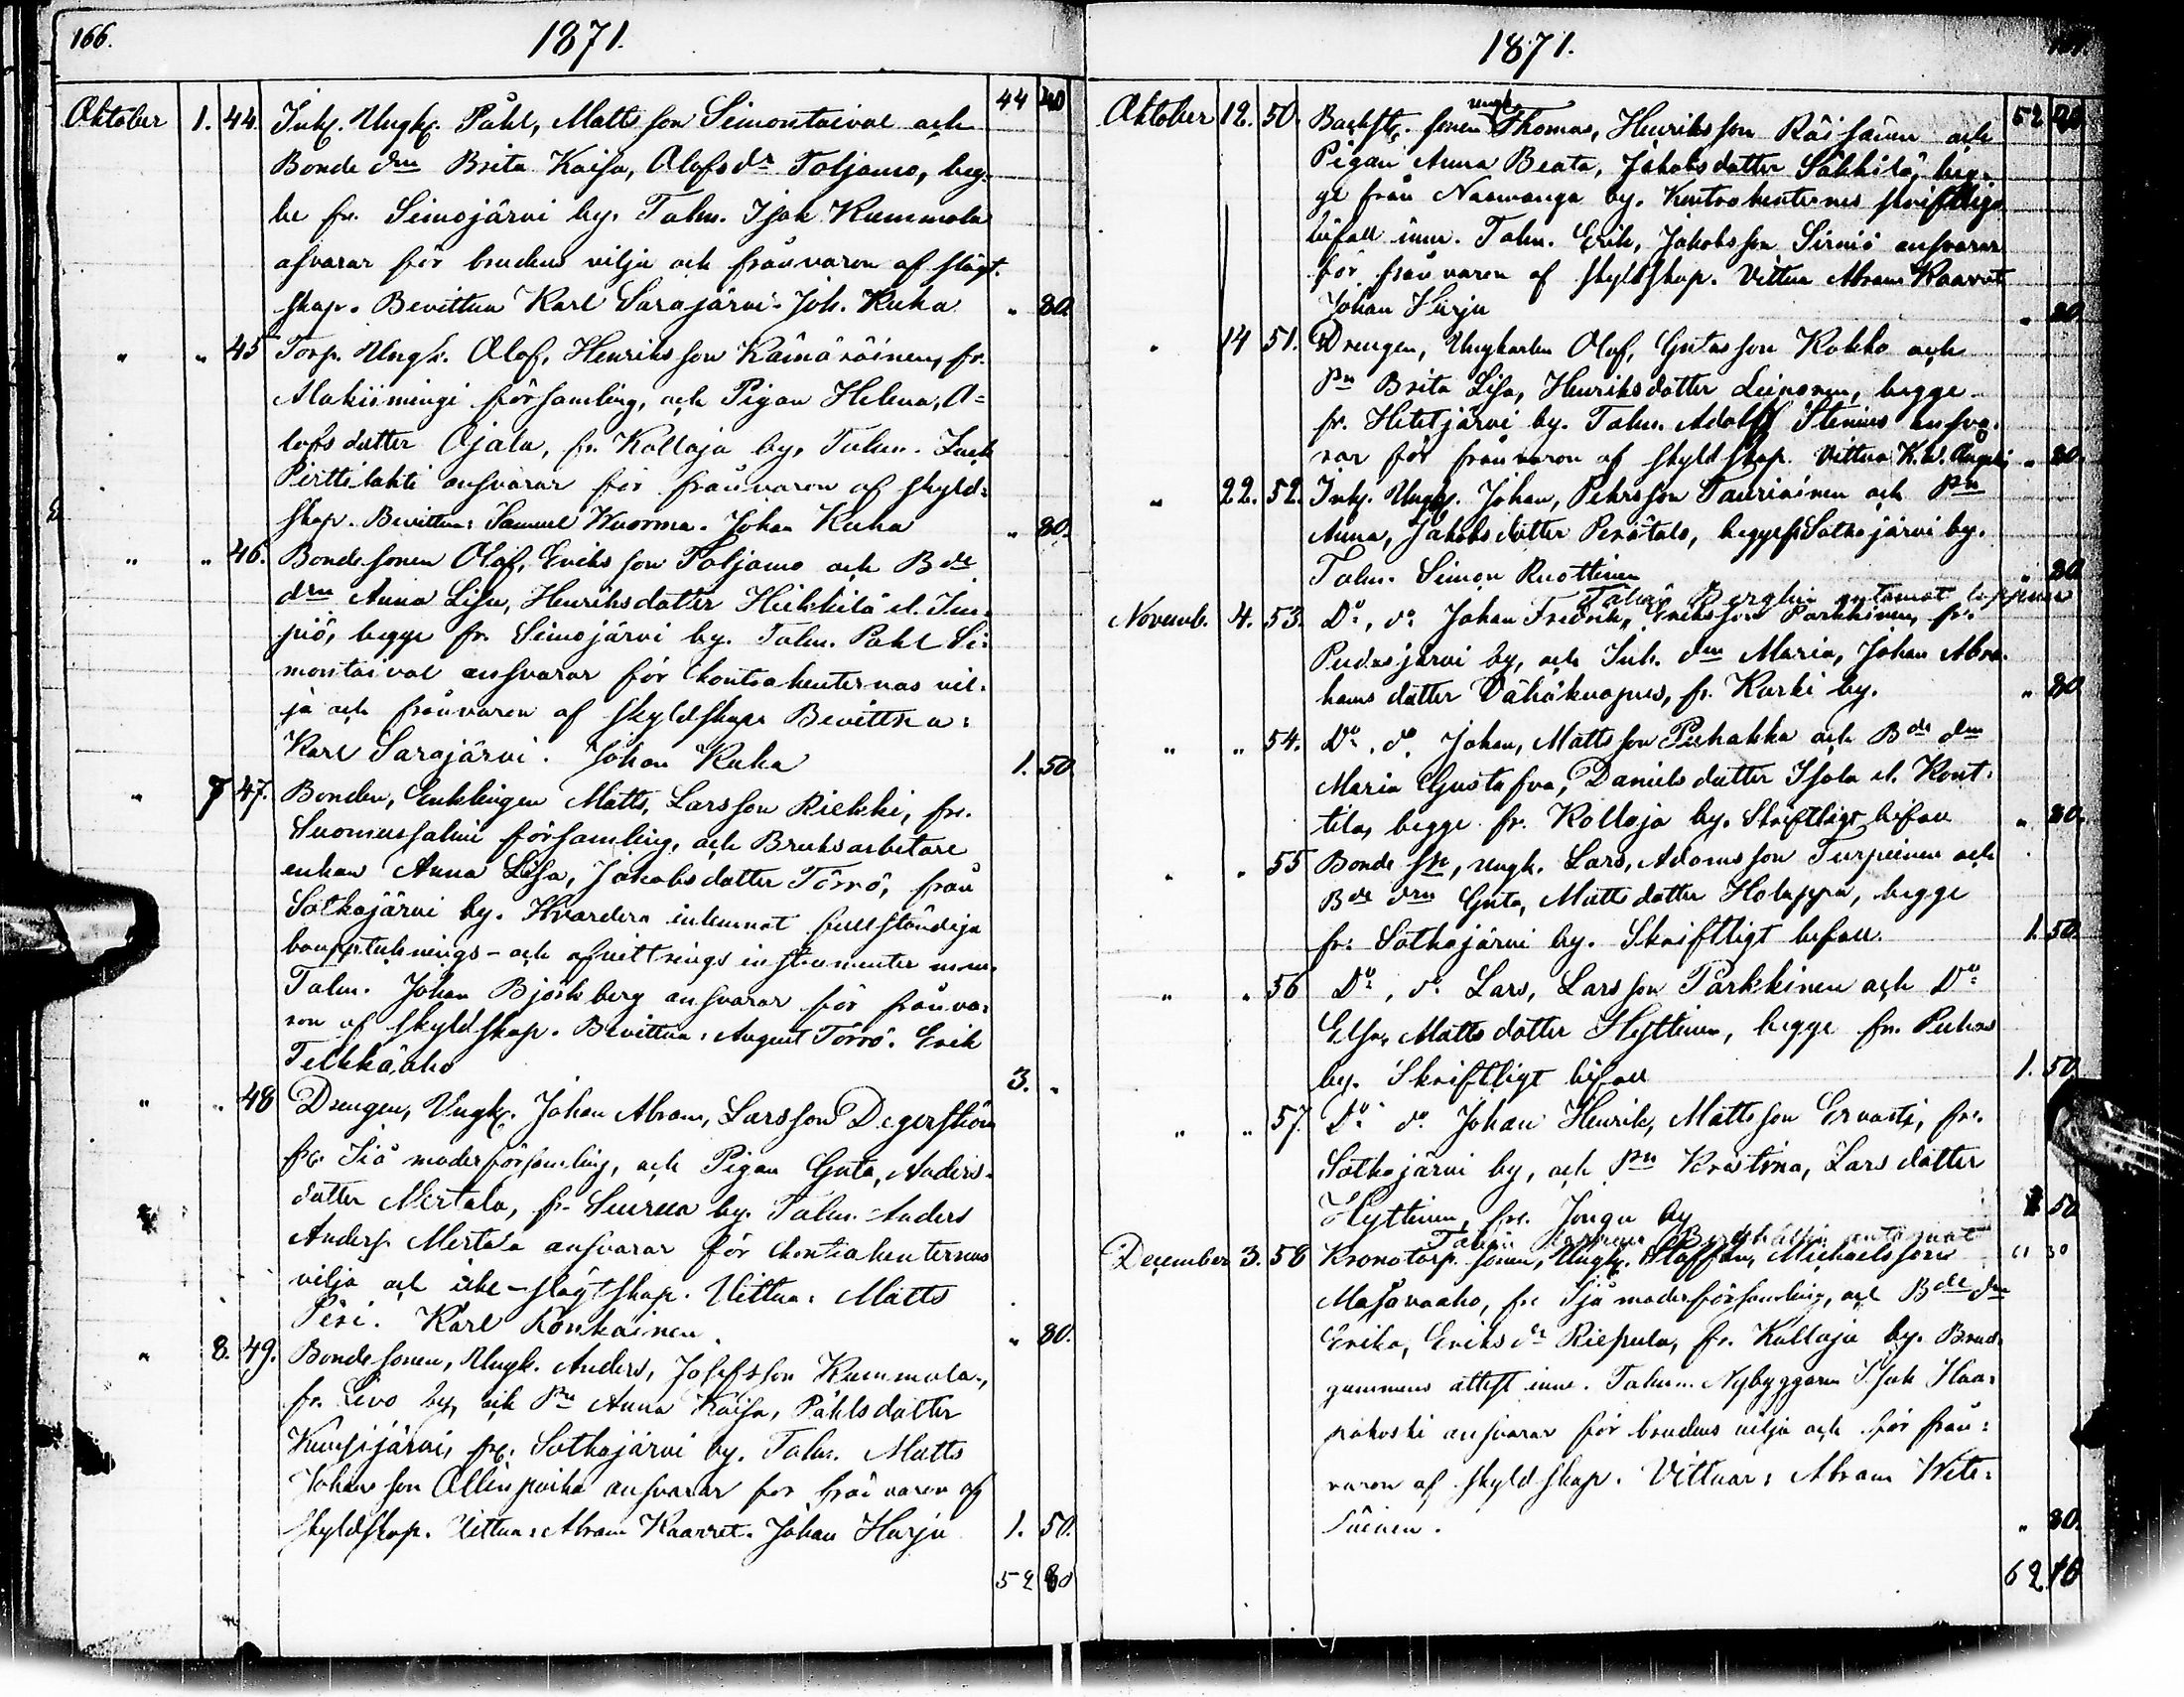 166.
1871.
44 40
Oktober 1. 44. Inh. Ungk. Påhl, Matts son Simontaival och
Bonde drn Brita Kaisa, Olofs dr Toljamo, beg.
be fr. Simojärvi by. Talm. Isak Kummala
asvarar för brudens vilja och frånvaron af slägt.
skap. Bevittna Karl Sarajärvi. Joh. Kuha " 80.
" " 45 Torp. Ungk. Olof, Henriks son Kämäräinen, fr.
Alakiimingi församling, och Pigan Helena, O=
lofs dotter Ojala, fr. Kollaja by. Talm. Isak
Pirttilahti ansvarar för frånvaron af skyld=
skap. Bevittna: Samuel Kuorma. Johan Kuha " 80.
" " 46. Bondesonen Olof, Eriks son Toljamo och Bde
drn Anna Lisa, Henriksdotter Heikkilä el. Im=
piö, begge fr. Simojärvi by. Talm. Påhl Si=
montaival ansvarar för kontrahenternas vil=
ja och frånvaron af skyldskap. Bevittna:
Karl Sarajärvi. Johan Kuha 1. 50
" 7 47. Bonden, Enklingen Matts, Larsson Riekki, fr.
Suomussalmi församling, och Bruksarbetare
enkan Anna Lisa, Jakobsdotter Törrö, från
Sotkajärvi by. Hvardera inlemnat fullständiga
bouptecknings- och afvittrings instrumenter
Talm. Johan Björkberg ansvarar för frånva=
ron af skyldskap. Bevittna: August Törrö. Erik
Telkkäaho 3. "
" " 48 Drengen, Ungk. Johan Abram, Larsson Degerström
fr. Ijå moderförsamling, och Pigan Greta, Anders=
dotter Mertala, fr. Siurua by. Talm. Anders
Anders. Mertala ansvarar för kontrahenternas
vilja och icke-slägtskap. Vittna: Matts
Piri. Karl Ronkainen. " 80.
" 8. 49. Bondesonen, Ungk. Anders, Josefsson Kummala,
fr. Livo by, och Pn Anna Kaisa, Påhlsdotter
Kuusijärvi, fr. Sotkajärvi by. Talm. Matts
Johansson Ollinpoika ansvarar för frånvaron af
skyldskap. Vittna: Abram Kaarret. Johan Hurju 1. 50.
52 80
1871.
52
Oktober 12. 50. Backst. sonen ungk. Thomas, Henriksson Räisänen och
Pigan Anna Beata, Jakobsdotter Säkkilä, beg=
ge från Naamanga by. Kontrahenternes skriftliga
bifall inne. Talm. Erik, Jakobsson Sirniö ansvarar
för frånvaron af skyldskap. Vittna Abram Kaarret
Johan Hurju " 80.
" 14 51. Drengen, Ungkarlen Olof, Gretas son Kokko och
Pn Brita Lisa, Henriksdotter Leinonen, begge
fr. Hetetjärvi by. Talm. Adolf Stenius ansva=
rar för frånvaron af skyldskap. Vittna K.W. " 80.
" 22. 52. Inh. Ungk. Johan, Pehrsson Tauriainen och Pn
Anna, Jakobsdotter Perätalo, begge fr Sotkajärvi by.
Talm. Simon Ruottinen " 80
Novemb. 4. 53. Do, do Johan Fredrik, Eriksson Parkkinen, fr.
Pudasjärvi by, och Inh. drn Maria, Johan Abra=
hams dotter Vähäkuopus, fr. Kurki by. " 80
" " 54. Do, do. Johan, Mattsson Puhakka och Bde drn
Maria Gustafva, Daniels dotter Isola el. Kont=
tila, begge fr. Kollaja by. Skriftligt bifall " 80.
" " 55 Bonde sn, ungk. Lars, Adamsson Turpeinen och
Bde drn Greta, Mattsdotter Holappa, begge
fr. Sotkajärvi by. Skriftligt bifall. 1. 50.
" " 56 Do, do Lars, Larsson Parkkinen och Do
Elsa, Mattsdotter Hyttinen, begge fr. Puhos
by. Skriftligt bifall 1. 50
" " 57. Do do Johan Henrik, Mattsson Ervasti, fr.
Sotkajärvi by, och Pn Kristina, Larsdotter
Hyttinen, fr. Jongu by 50
December 3. 58 Kronotorp. sonen, Ungk. Staffan, Michaelsson " 30
Masavaaho, fr. Ijå moderförsamling, och Bde drn
Erika, Eriks dr Riepula, fr. Kollaja by. Brud=
gummens attest inne. Talm. Nybyggaren Isak Haa=
pakoski ansvarar för brudens vilja och för från=
varon af skyldskap. Vittnar: Abram
" 80.
62 10